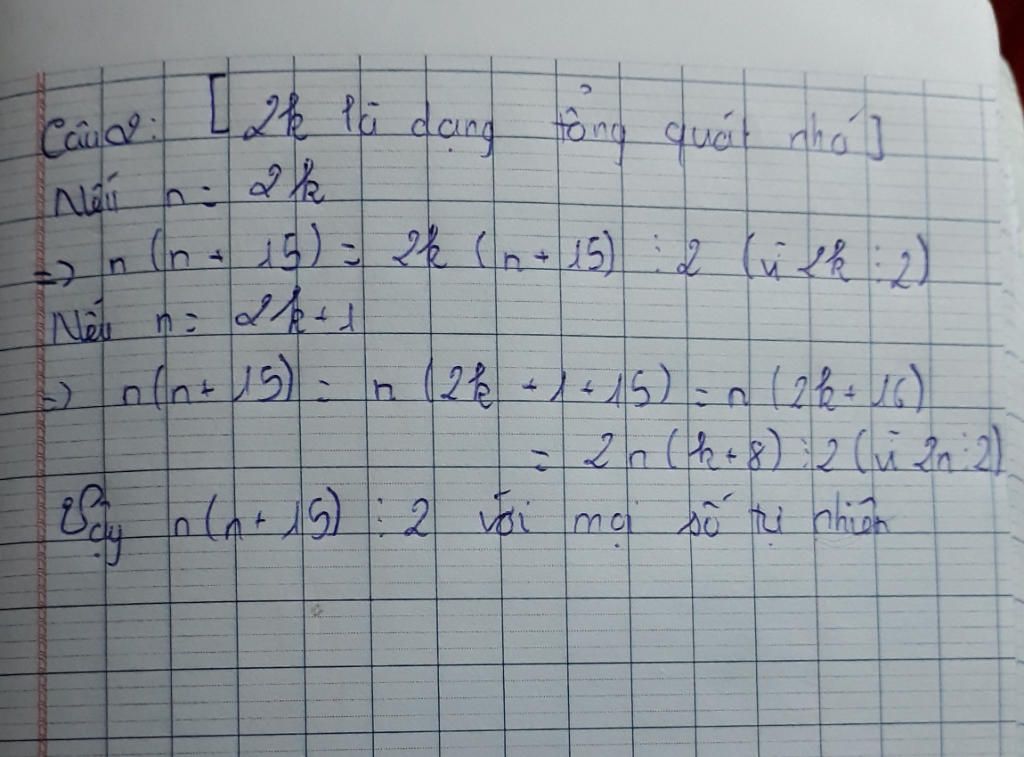 Câu 2: [ 2k là dạng tổng quát nhá ]
Nếu n = 2k
=> n(n + 15) = 2k (n + 15) ⋮ 2 (vì 2k ⋮ 2)
Nếu n = 2k + 1
=> n(n + 15) = n (2k + 1 + 15) = n (2k + 16)
= 2n (k + 8) ⋮ 2 (vì 2n ⋮ 2)
Vậy n(n + 15) ⋮ 2 với mọi số tự nhiên